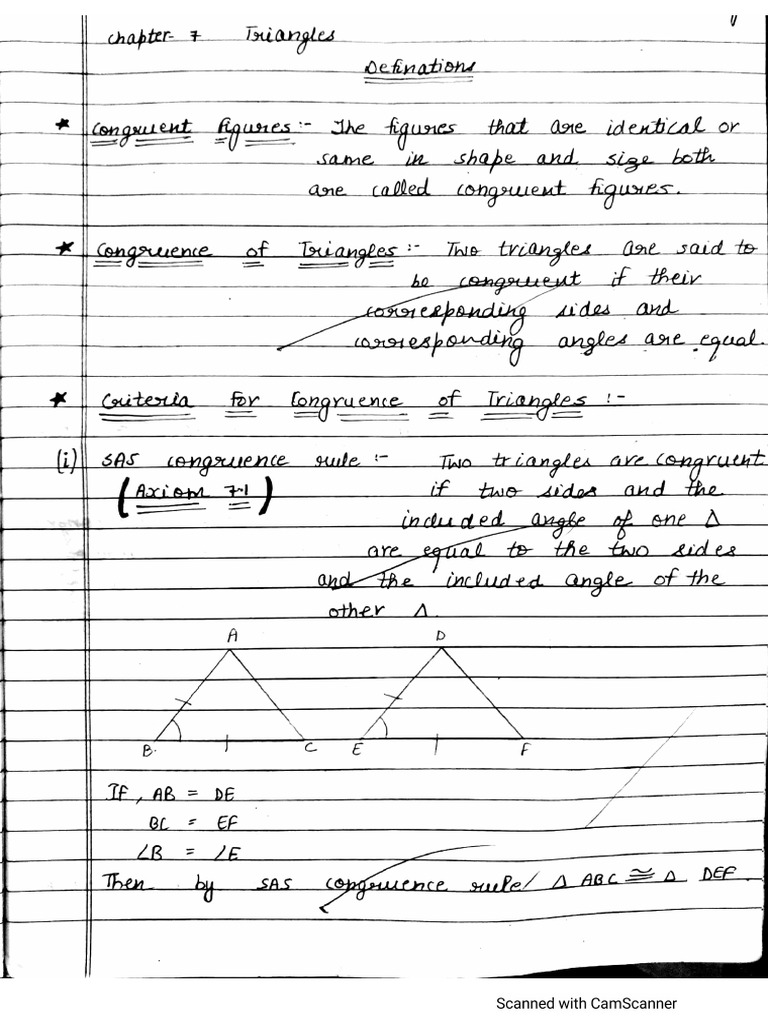 Chapter- 7 Triangles
Definations
* Congruent figures :- The figures that are identical or
same in shape and size both
are called congruent figures.
* Congruence of Triangles :- Two triangles are said to
be congruent if their
corresponding sides and
corresponding angles are equal.
* Criteria for Congruence of Triangles :-
(i) SAS congruence rule :- Two triangles are congruent
(Axiom 7.1) if two sides and the
included angle of one Δ
are equal to the two sides
and the included angle of the
other Δ.
A D
B C E F
If, AB = DE
BC = EF
∠B = ∠E
Then by SAS congruence rule, Δ ABC ≅ Δ DEF.
Scanned with CamScanner